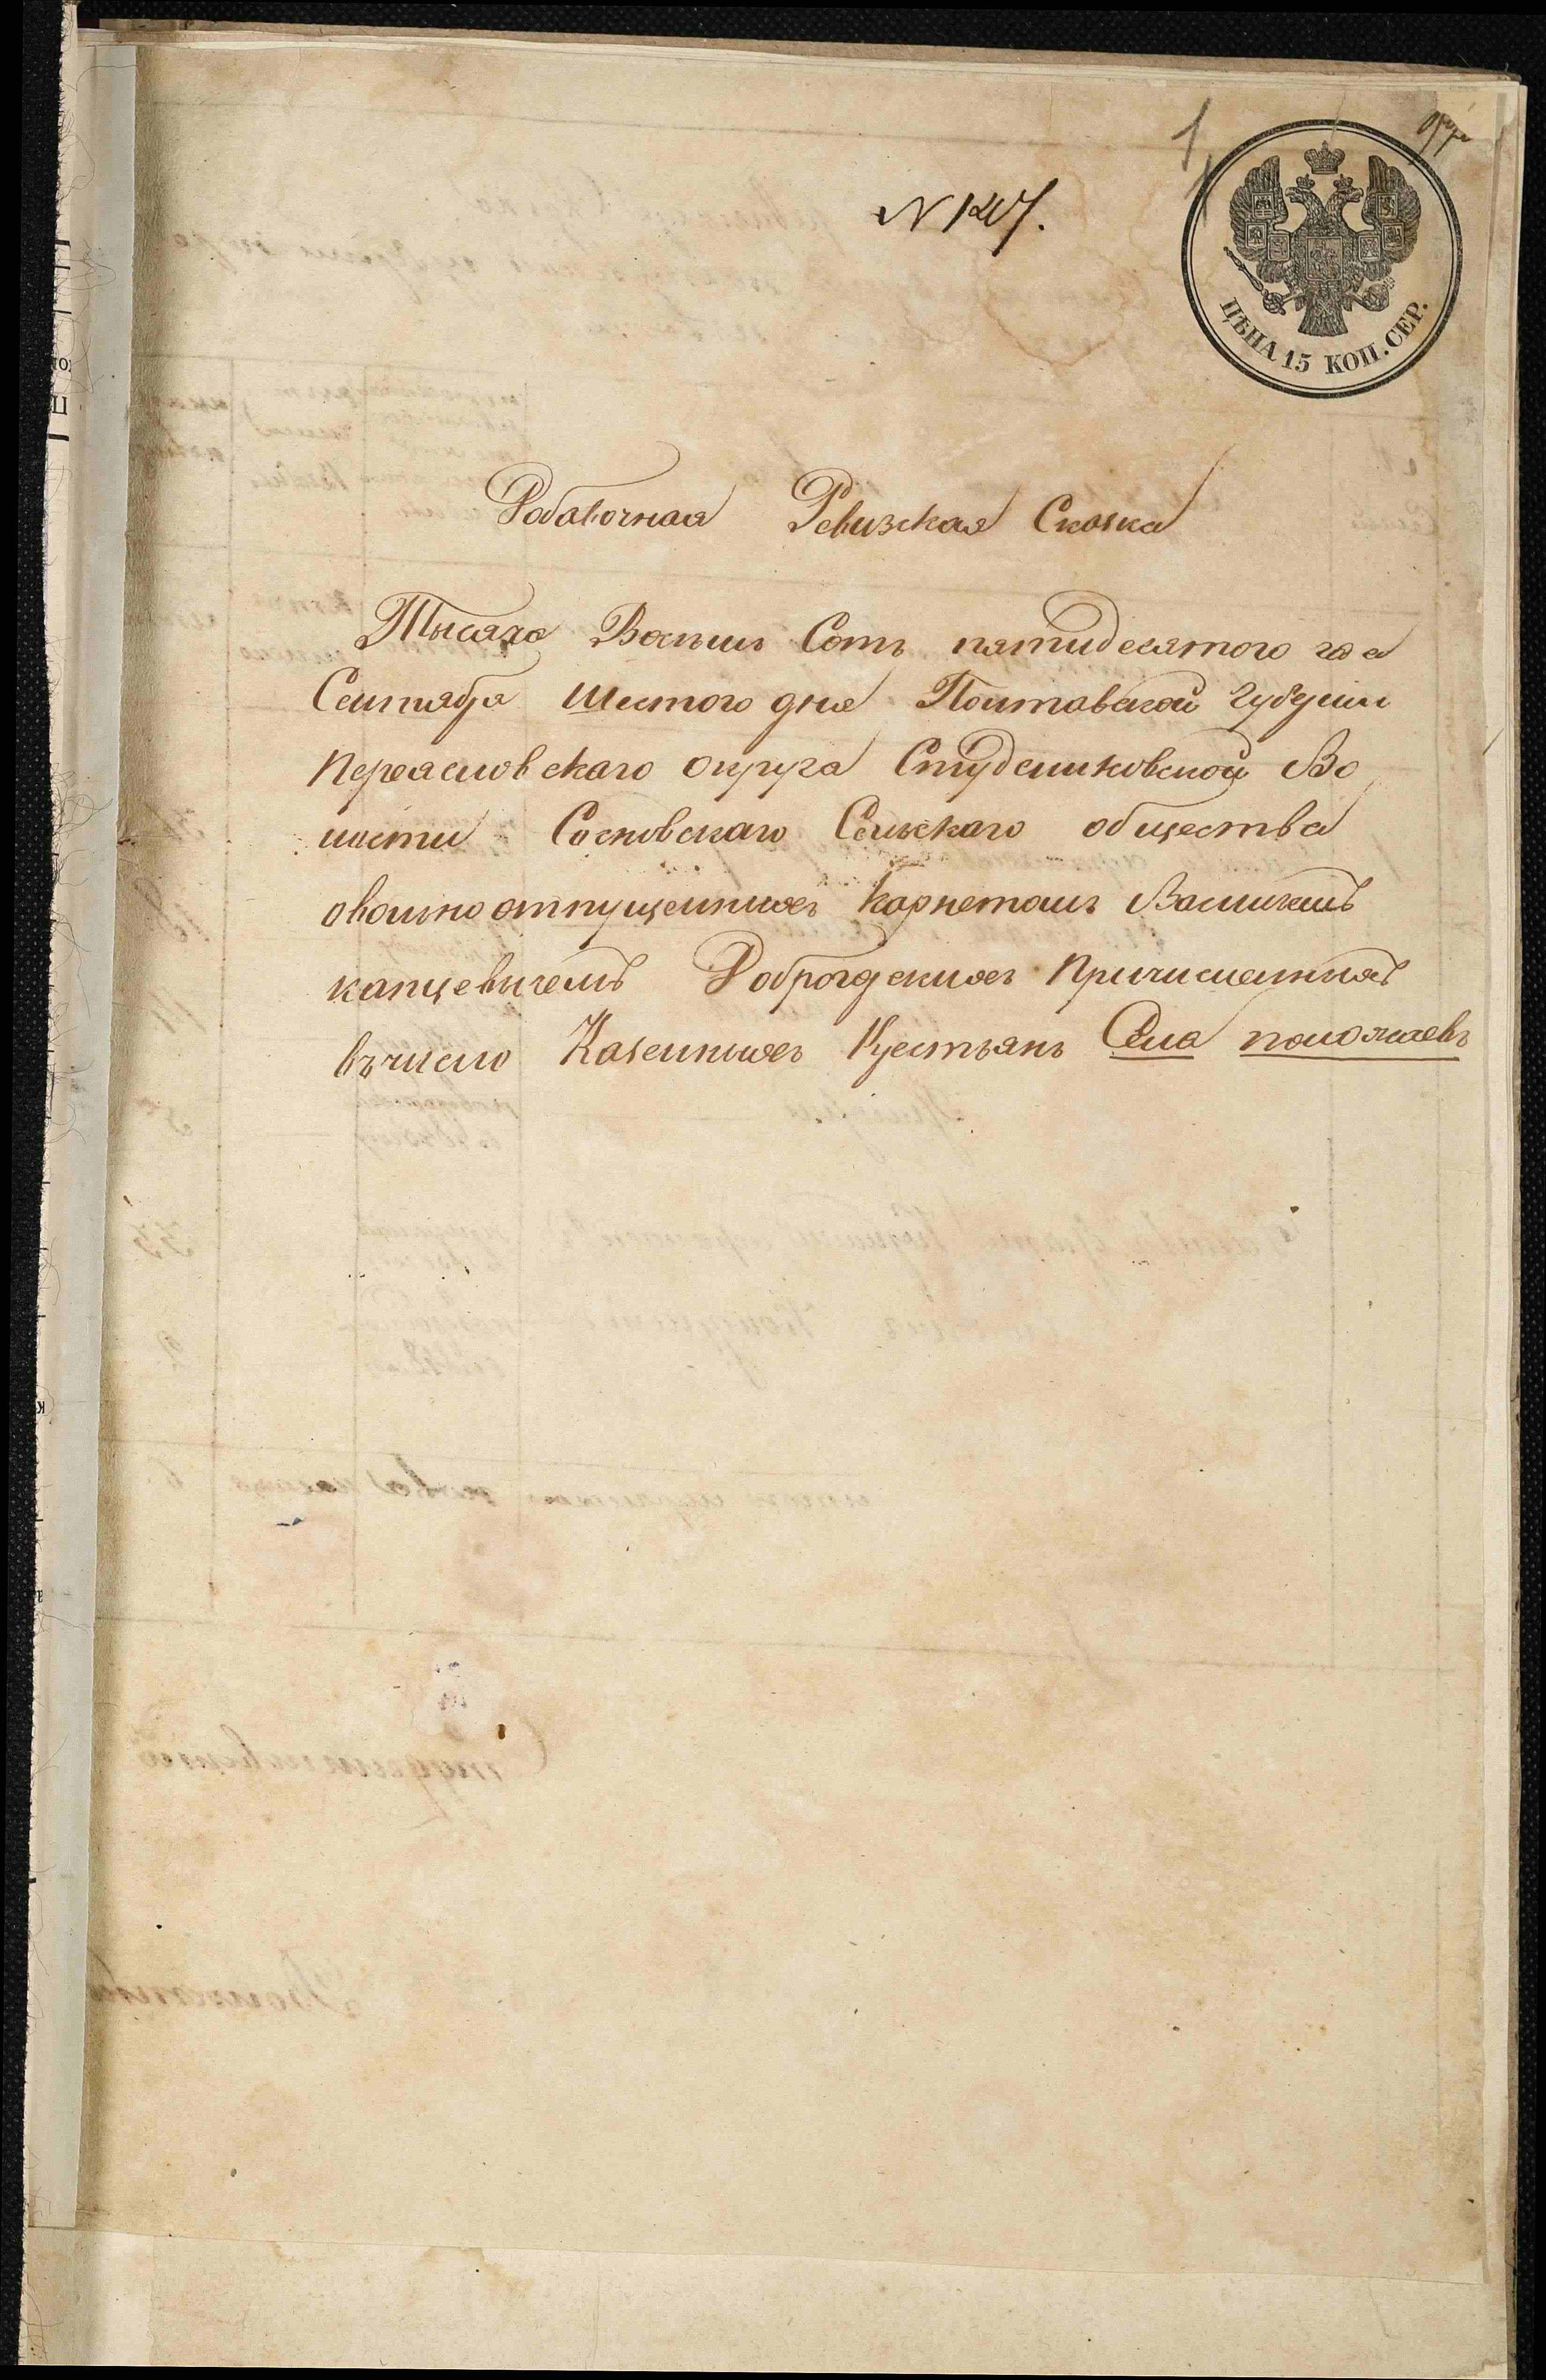 1
N 1247.
ЦѢНА 15 КОП. СЕР.
Добавочная Ревизская Сказка
Тысяча Восемь Сотъ пятидесятого года
Сентября шестого дня Полтавской Губерніи
Переяславскаго округа Студениковской Во
лости Сосновскаго Сельскаго общества
овольно отпущенныхъ Корнетомъ Василіемъ
Доброгдскихъ Причисленныхъ
въ число Казенныхъ Крестьянъ Села пологжевъ